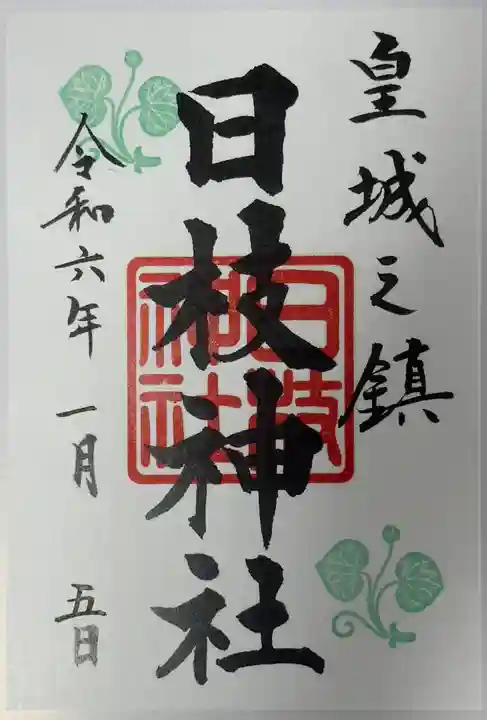 皇城之鎮
日枝神社
日枝神社
令和六年 一月 五日